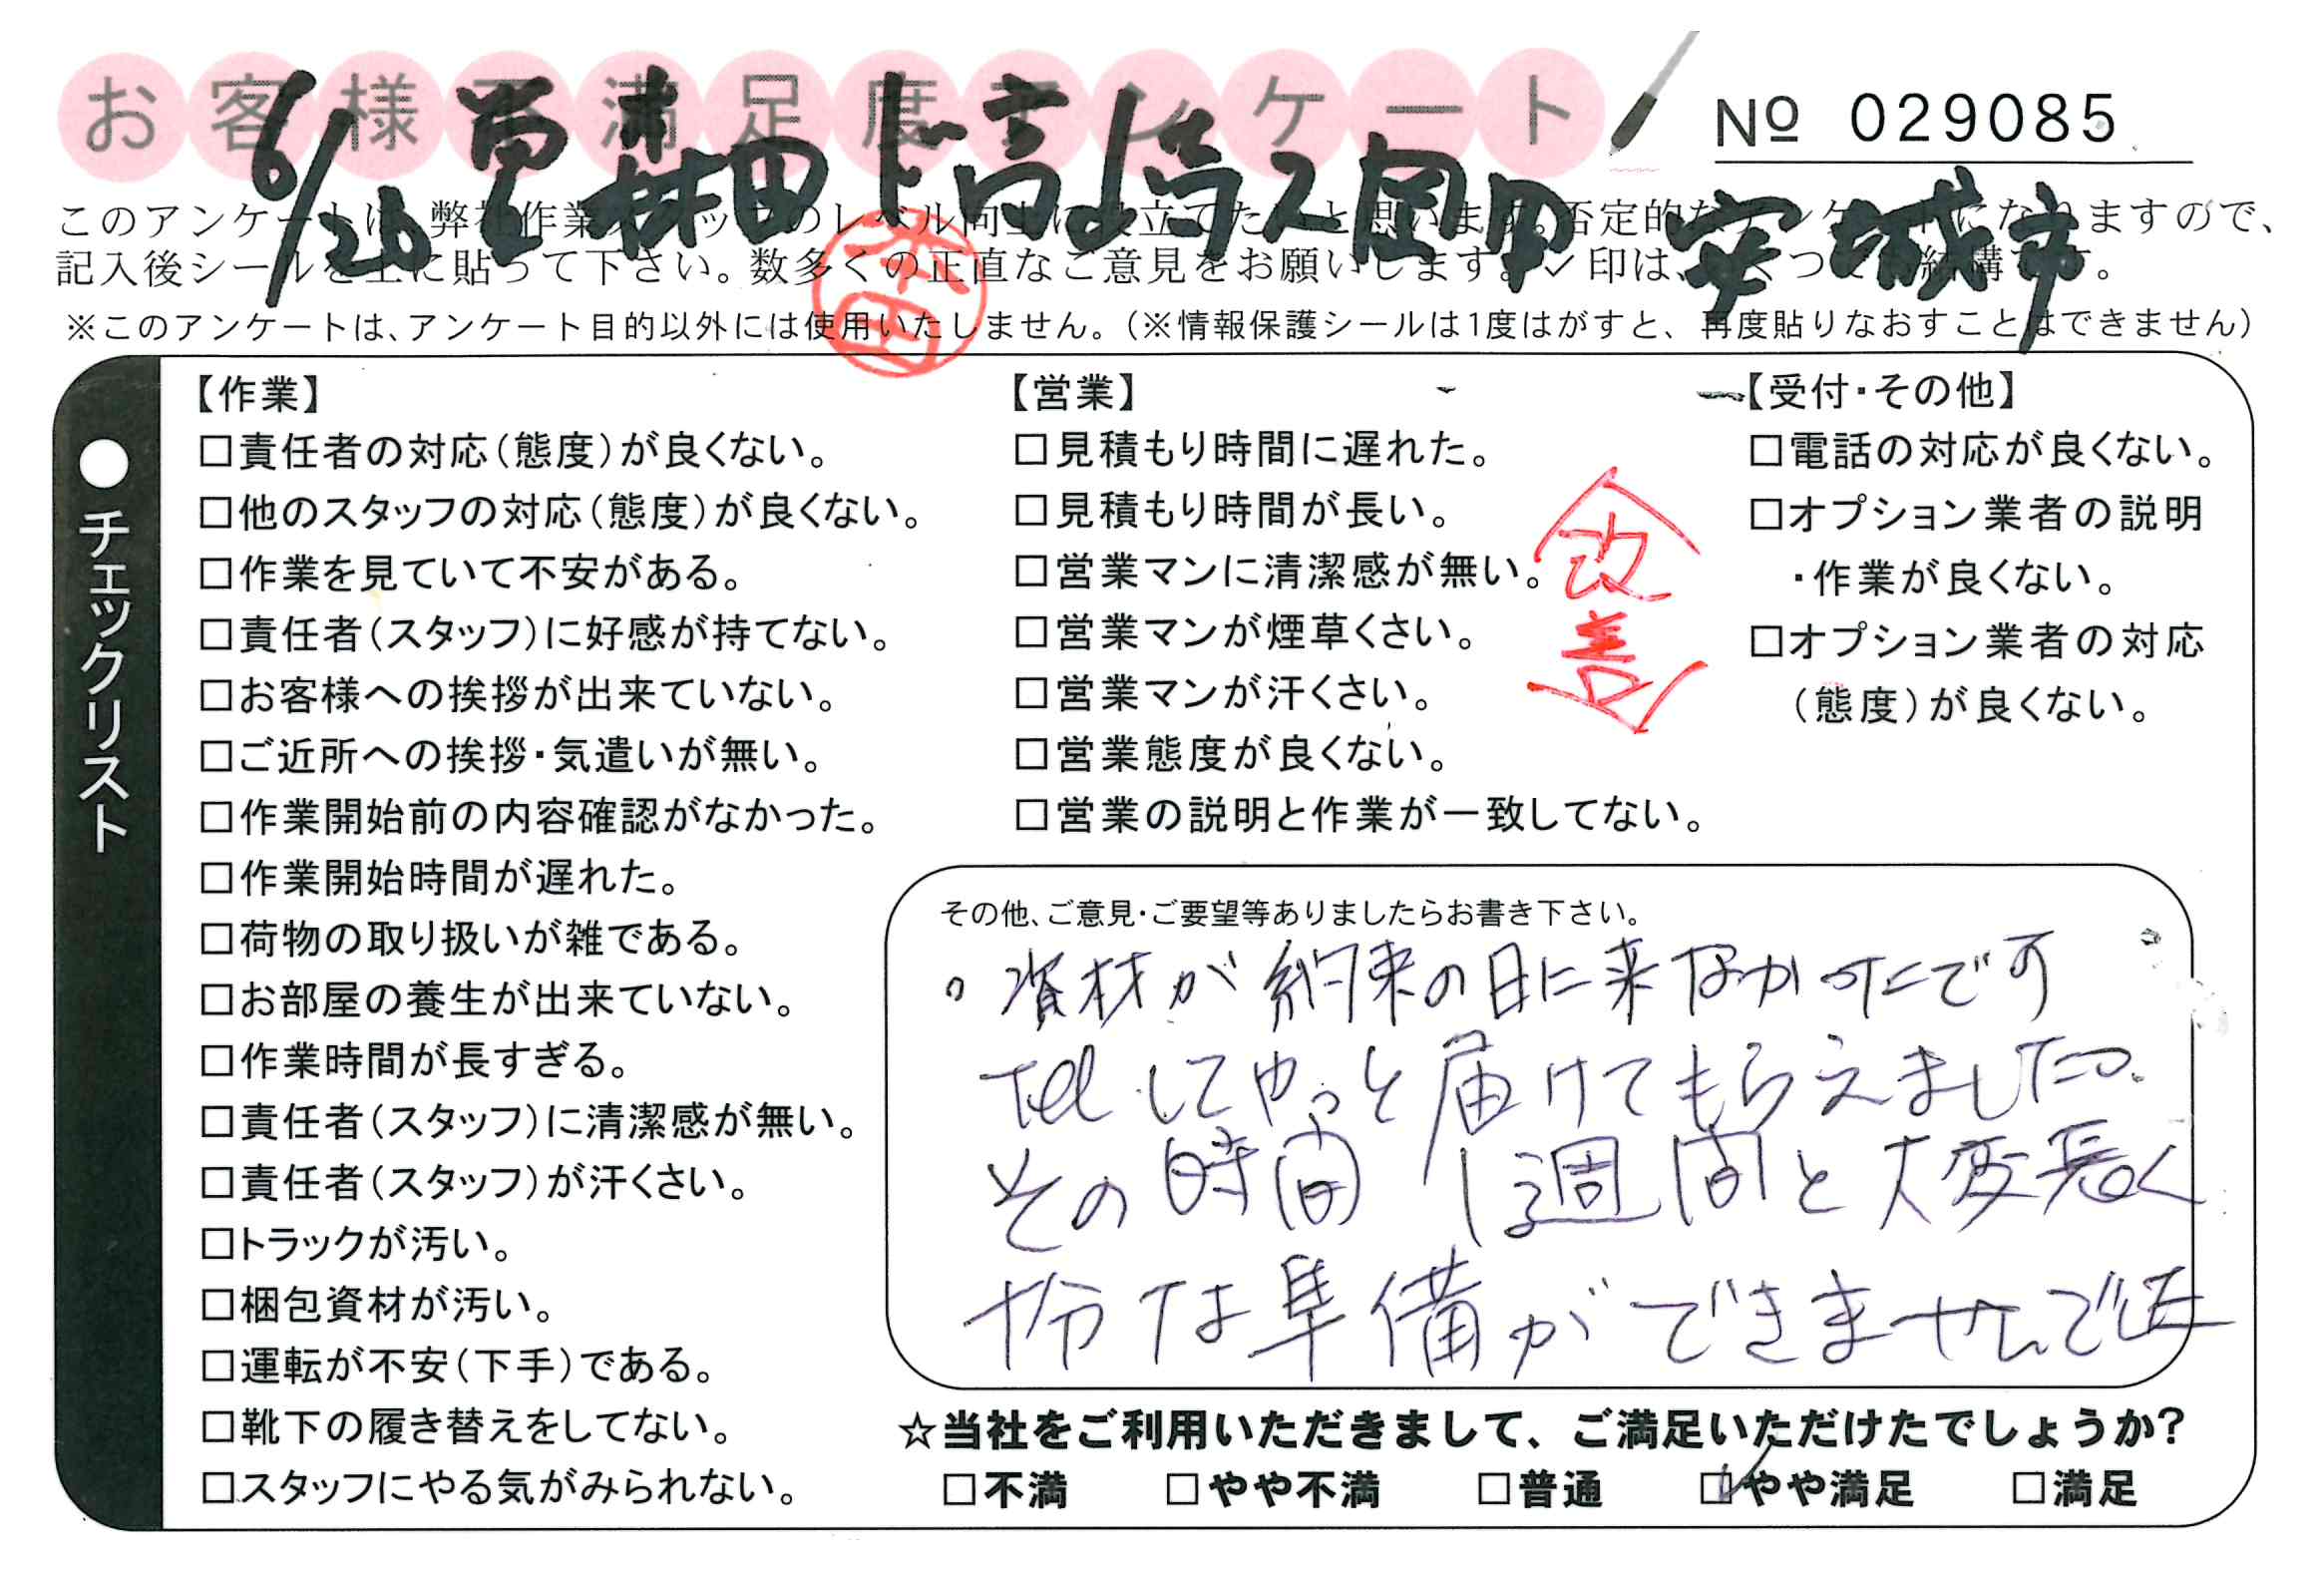 お客様不満足度アンケート
№ 029085
6/26
安城市
このアンケートは、弊社作業スタッフのレベル向上に役立てたいと思います。否定的なアンケートになりますので、
記入後シールを上に貼って下さい。数多くの正直なご意見をお願いします。✓印は、いくつでも結構です。
※このアンケートは、アンケート目的以外には使用いたしません。(※情報保護シールは1度はがすと、再度貼りなおすことはできません)
●チェックリスト
【作業】
□責任者の対応(態度)が良くない。
□他のスタッフの対応(態度)が良くない。
□作業を見ていて不安がある。
□責任者(スタッフ)に好感が持てない。
□お客様への挨拶が出来ていない。
□ご近所への挨拶・気遣いが無い。
□作業開始前の内容確認がなかった。
□作業開始時間が遅れた。
□荷物の取り扱いが雑である。
□お部屋の養生が出来ていない。
□作業時間が長すぎる。
□責任者(スタッフ)に清潔感が無い。
□責任者(スタッフ)が汗くさい。
□トラックが汚い。
□梱包資材が汚い。
□運転が不安(下手)である。
□靴下の履き替えをしてない。
□スタッフにやる気がみられない。
【営業】
□見積もり時間に遅れた。
□見積もり時間が長い。
□営業マンに清潔感が無い。
□営業マンが煙草くさい。
□営業マンが汗くさい。
□営業態度が良くない。
□営業の説明と作業が一致してない。
改善
【受付・その他】
□電話の対応が良くない。
□オプション業者の説明
・作業が良くない。
□オプション業者の対応
(態度)が良くない。
その他、ご意見・ご要望等ありましたらお書き下さい。
。資材が約束の日に来なかったです
telしてやっと届けてもらえました。
その時間1週間と大変長く
十分な準備ができませんでした
☆当社をご利用いただきまして、ご満足いただけたでしょうか?
□不満 □やや不満 □普通 ☑やや満足 □満足